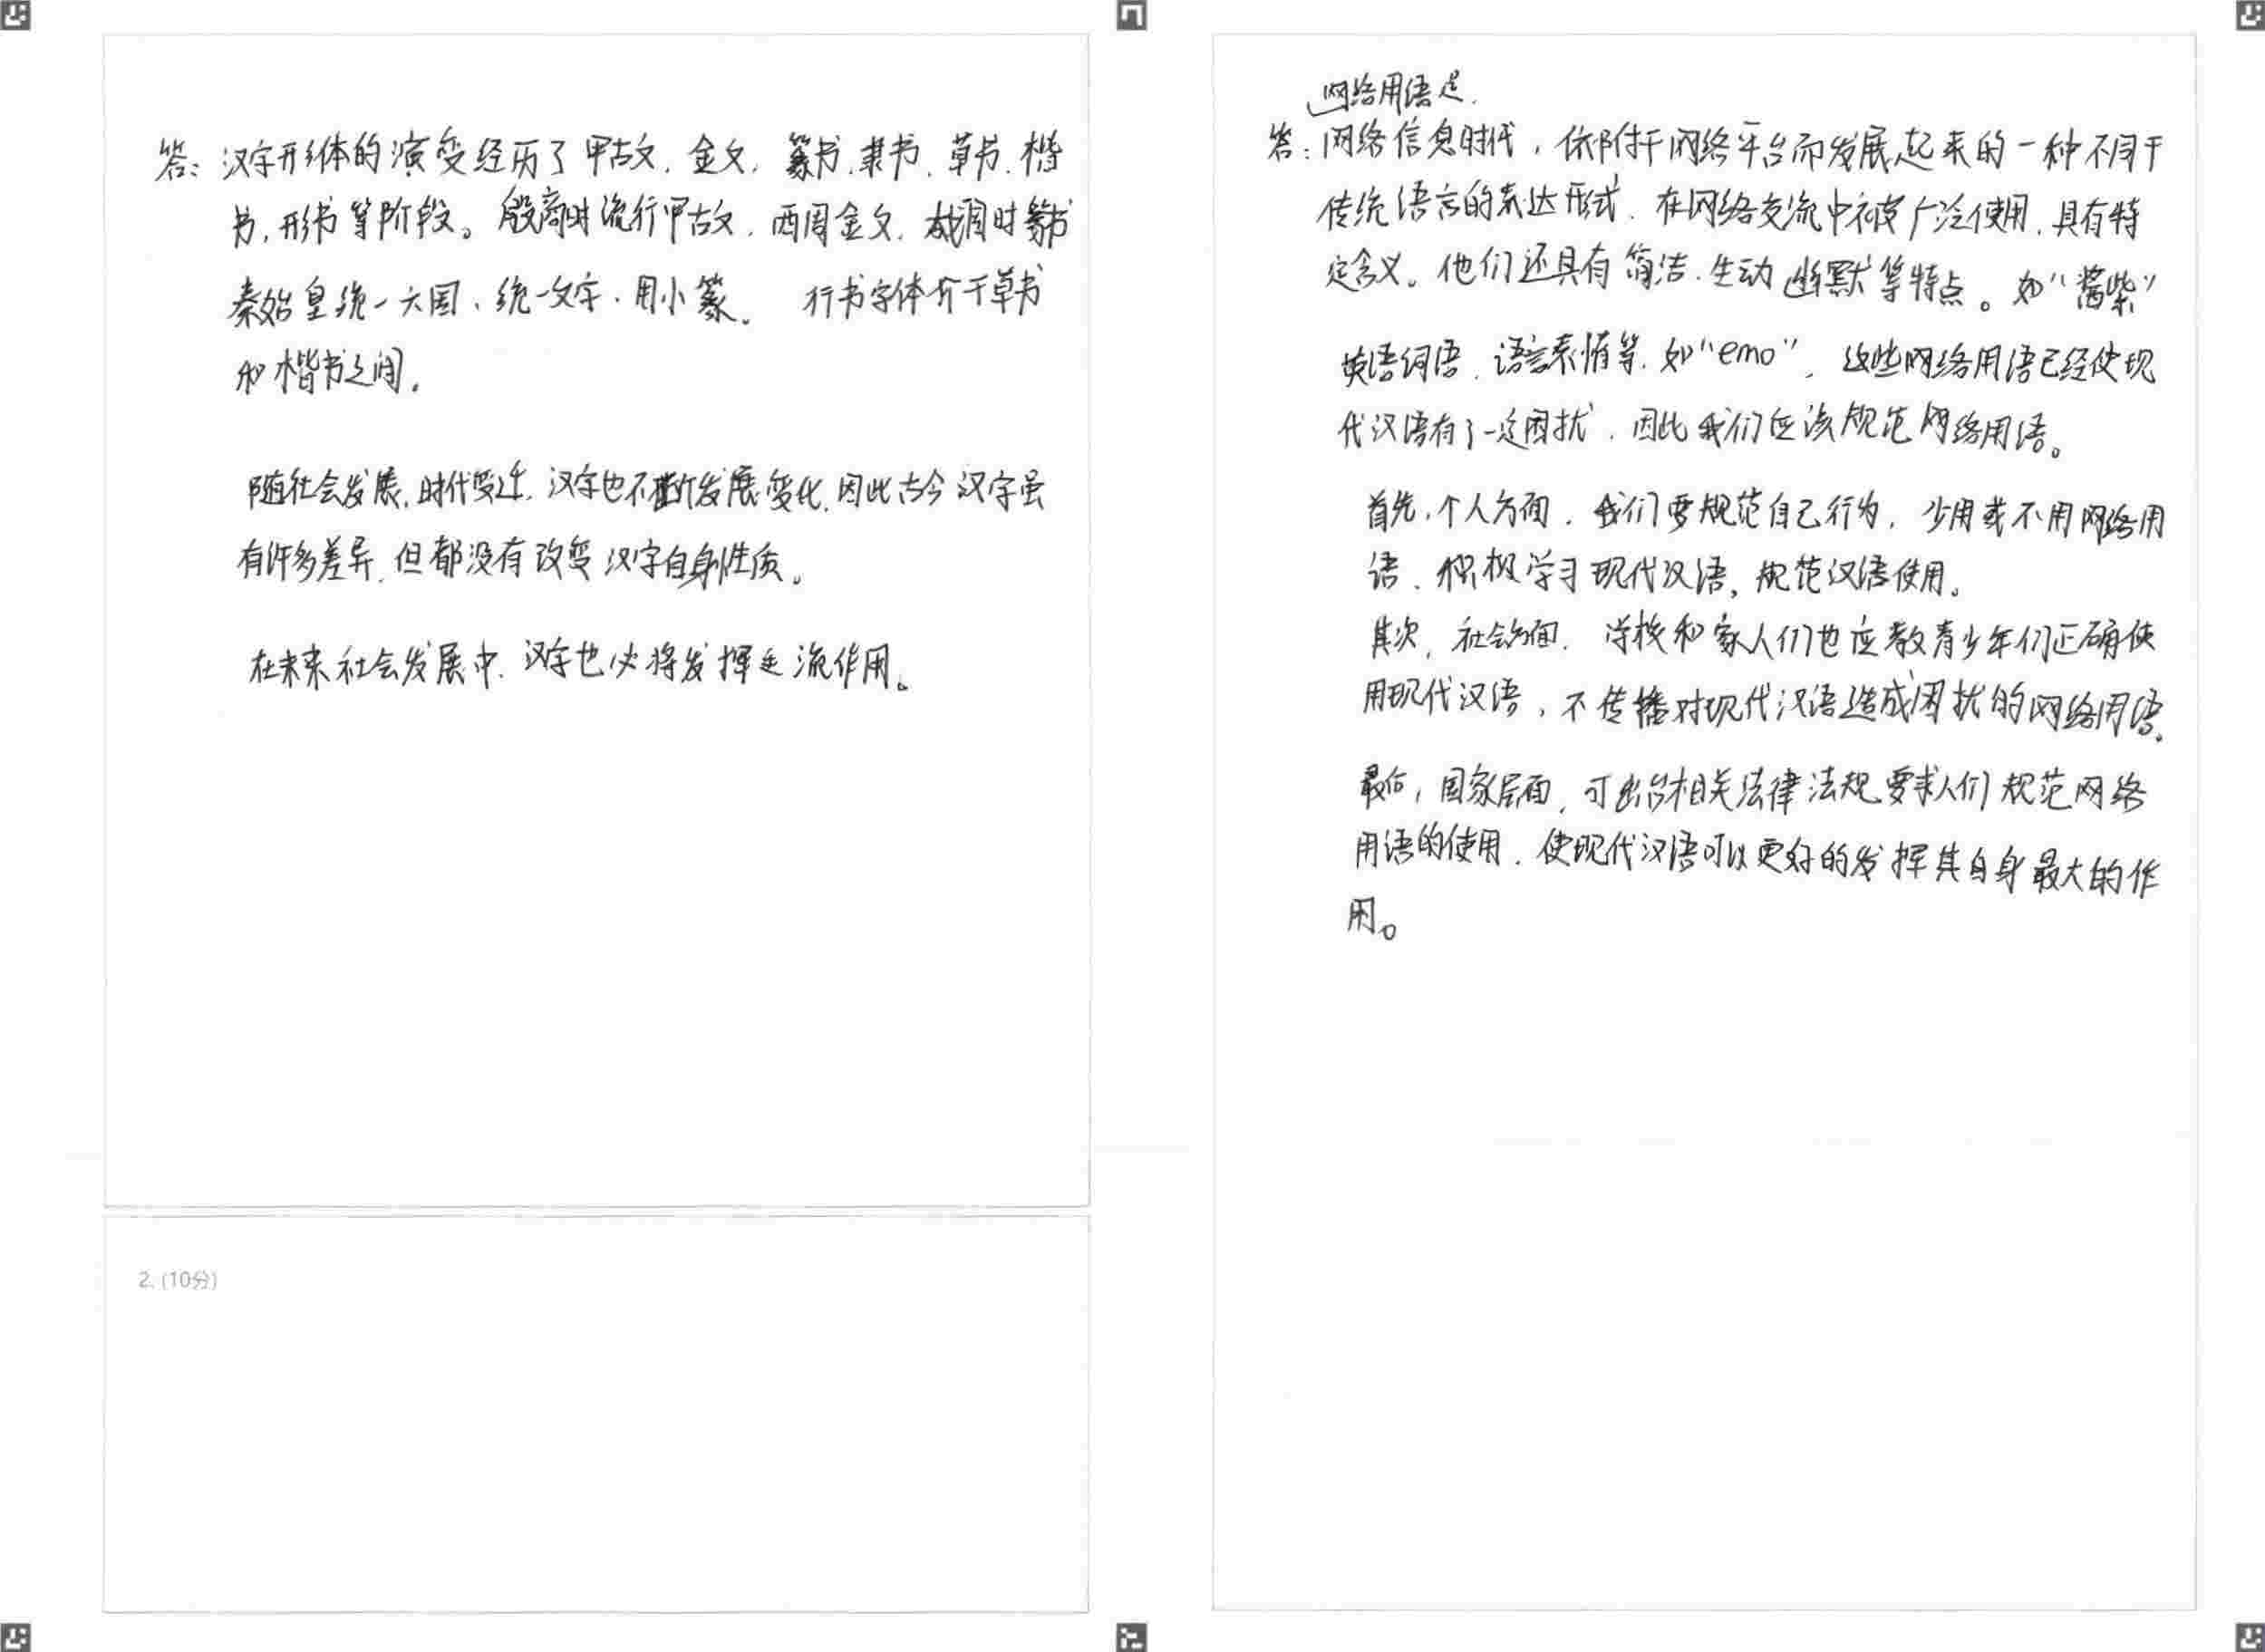 答：汉字形体的演变经历了甲古文、金文、篆书、隶书、草书、楷
书,形书等阶段。殷商时流行甲古文，西周金文、战国时篆书
秦始皇统一六国、统一文字、用小篆。 行书字体介于草书
和楷书之间。
随社会发展,时代变迁,汉字也不断发展变化,因此古今汉字虽
有许多差异,但都没有改变汉字自身性质。
在未来社会发展中.汉字也必将发挥主流作用。
2. (10分)
网络用语是
答：网络信息时代，依附于网络平台而发展起来的一种不同于
传统语言的表达形式、在网络交流中被广泛使用,具有特
定含义。他们还具有简洁、生动 幽默等特点。如“酱紫”
英语词语、语言表情等,如“emo”，这些网络用语已经使现
代汉语有了一定困扰,因此我们应该规范网络用语。
首先,个人方面,我们要规范自己行为，少用或不用网络用
语、积极学习现代汉语,规范汉语使用。
其次,社会方面.学校和家人们也应教青少年们正确使
用现代汉语，不传播对现代汉语造成困扰的网络用语。
最后,国家层面,可出台相关法律法规要求人们规范网络
用语的使用.使现代汉语可以更好的发挥其自身最大的作
用。